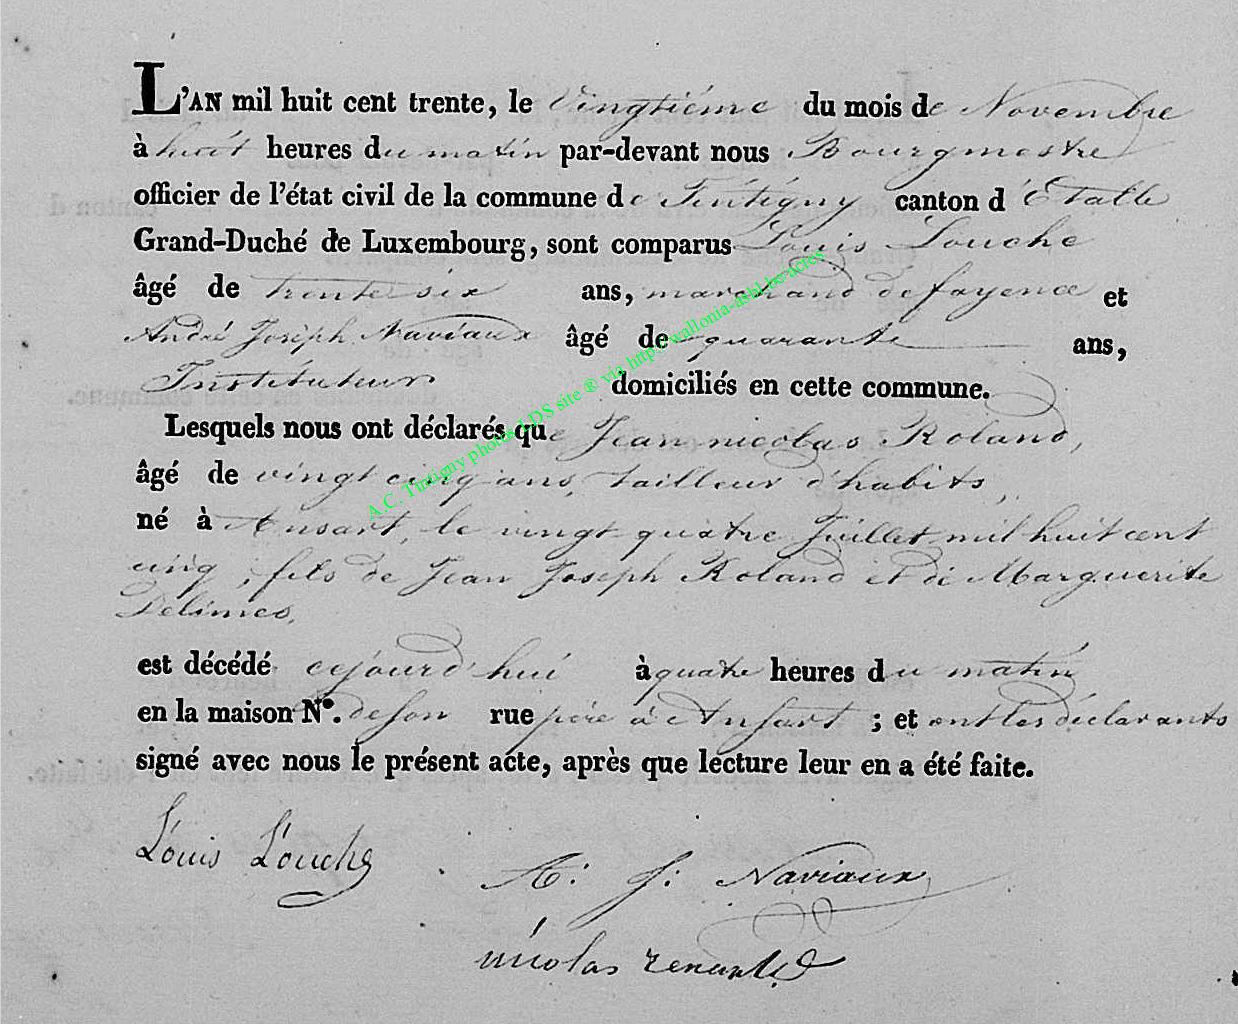 L'AN mil huit cent trente, le Vingtiéme du mois de Novembre
à huit heures du matin par-devant nous Bourgmestre
officier de l'état civil de la commune de Tintigny canton d'Etalle
Grand-Duché de Luxembourg, sont comparus Louis Louche
âgé de trente six ans, marchand de fayence et
André Joseph Naviaux âgé de quarante ans,
Instituteur domiciliés en cette commune.
Lesquels nous ont déclarés que Jean nicolas Roland,
âgé de vingt cinq ans, tailleur d'habits,
né à Ansart, le vingt quatre Juillet mil huit cent
cinq, fils de Jean Joseph Roland et de Marguerite
est décédé cejourd'hui à quatre heures du matin
en la maison N°. de son rue père à Ansart ; et ont les déclarants
signé avec nous le présent acte, après que lecture leur en a été faite.
Louis Louche
A: J: Naviaux
nicolas
A.C. Tintigny photos LDS site ® via http://wallonia-asbl.be/actes